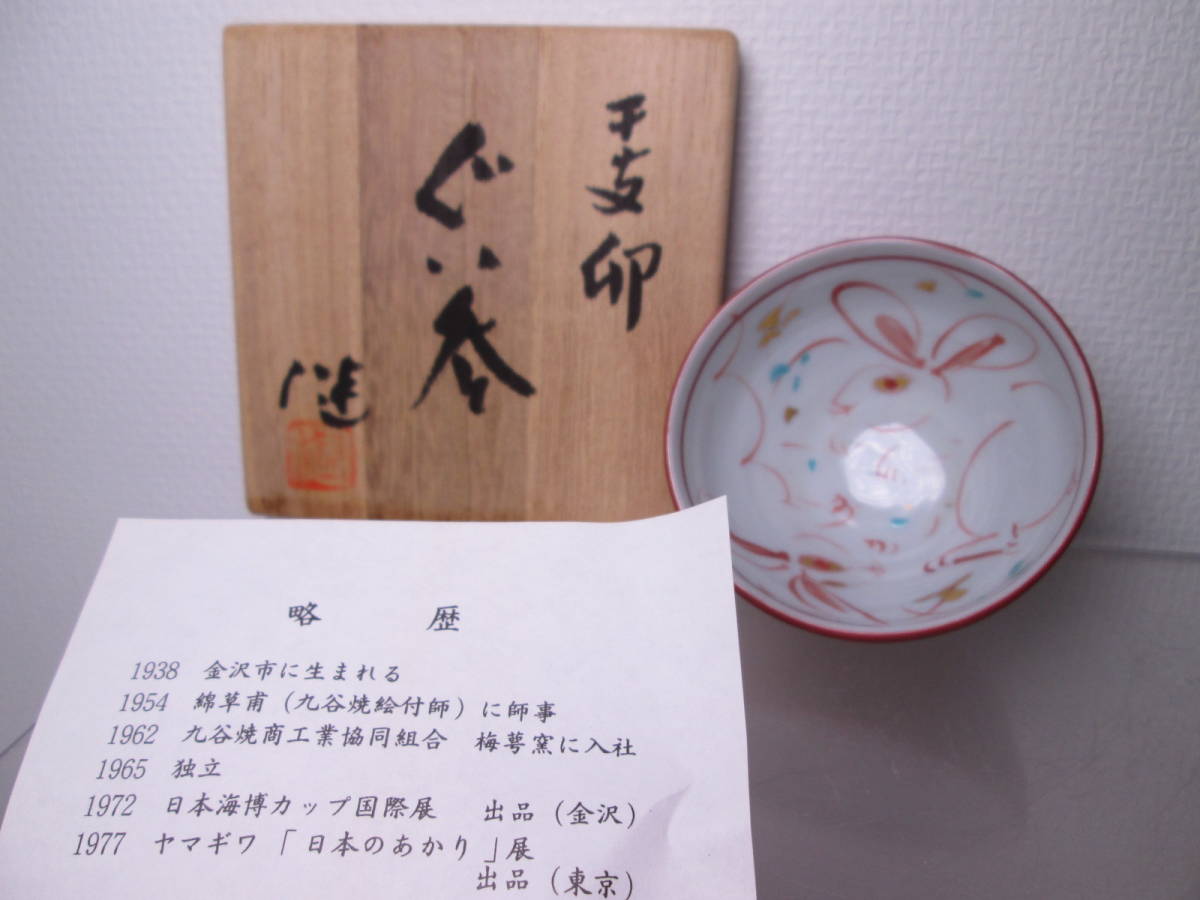 干支 卯
ぐい呑
健
略 歴
1938 金沢市に生まれる
1954 綿草甫(九谷焼絵付師)に師事
1962 九谷焼商工業協同組合 梅萼窯に入社
1965 独立
1972 日本海博カップ国際展 出品(金沢)
1977 ヤマギワ「日本のあかり」展
出品(東京)